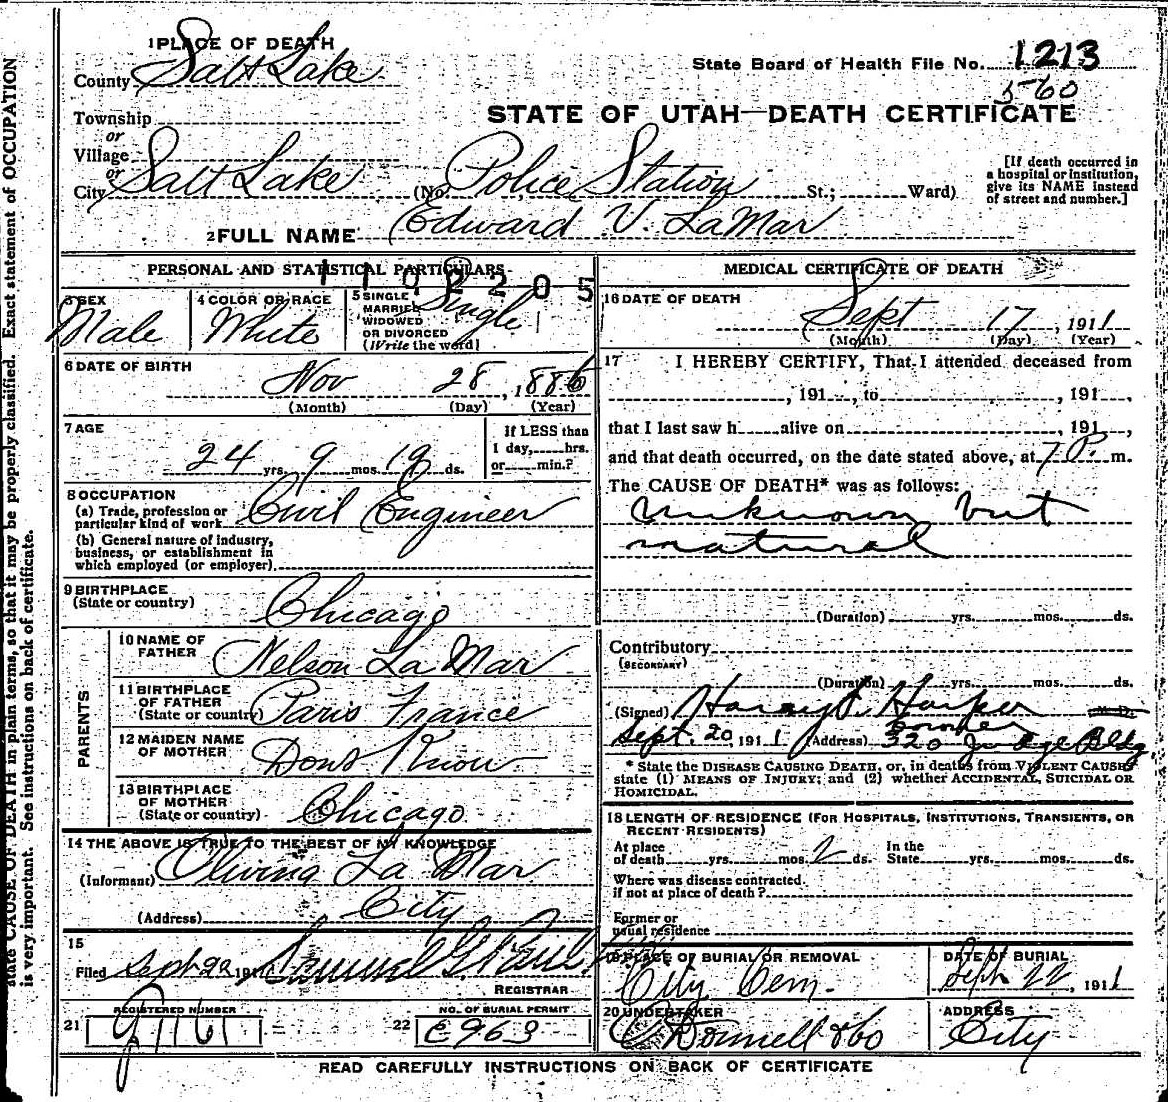 state CAUSE OF DEATH in plain terms, so that it may be properly classified. Exact statement of OCCUPATION
is very important. See instructions on back of certificate.
1 PLACE OF DEATH
County Salt Lake
State Board of Health File No. 1213
560
Township
or
Village
or
City Salt Lake (No. Police Station St.; Ward)
STATE OF UTAH—DEATH CERTIFICATE
[If death occurred in
a hospital or institution,
give its NAME instead
of street and number.]
2 FULL NAME Edward V. LaMar
1192205
PERSONAL AND STATISTICAL PARTICULARS
3 SEX
Male
4 COLOR OR RACE
White
5 SINGLE
MARRIED
WIDOWED
OR DIVORCED
(Write the word)
Single
6 DATE OF BIRTH
Nov 28, 1886
(Month) (Day) (Year)
7 AGE
24 yrs. 9 mos. 19 ds.
If LESS than
1 day, hrs.
or min.?
8 OCCUPATION
(a) Trade, profession or
particular kind of work Civil Engineer
(b) General nature of industry,
business, or establishment in
which employed (or employer).
9 BIRTHPLACE
(State or country)
Chicago
PARENTS
10 NAME OF
FATHER
Nelson La Mar
11 BIRTHPLACE
OF FATHER
(State or country)
Paris France
12 MAIDEN NAME
OF MOTHER
Dont Know
13 BIRTHPLACE
OF MOTHER
(State or country)
Chicago
14 THE ABOVE IS TRUE TO THE BEST OF MY KNOWLEDGE
(Informant) La Mar
(Address) City
15
Filed Sept 22 191
REGISTRAR
REGISTERED NUMBER
21
NO. OF BURIAL PERMIT
22 C963
MEDICAL CERTIFICATE OF DEATH
16 DATE OF DEATH
Sept 17, 1911
(Month) (Day) (Year)
17 I HEREBY CERTIFY, That I attended deceased from
, 191 , to , 191 ,
that I last saw h alive on , 191 ,
and that death occurred, on the date stated above, at 7 P. m.
The CAUSE OF DEATH* was as follows:
unknown but
natural
(Duration) yrs. mos. ds.
Contributory
(SECONDARY)
(Duration) yrs. mos. ds.
(Signed) Harper M. D.
Coroner
Sept. 20, 1911 (Address) 320 Judge Bldg
* State the DISEASE CAUSING DEATH, or, in deaths from VIOLENT CAUSES
state (1) MEANS OF INJURY; and (2) whether ACCIDENTAL, SUICIDAL OR
HOMICIDAL.
18 LENGTH OF RESIDENCE (FOR HOSPITALS, INSTITUTIONS, TRANSIENTS, OR
RECENT RESIDENTS)
At place
of death yrs. mos. 2 ds.
In the
State yrs. mos. ds.
Where was disease contracted.
if not at place of death?
Former or
usual residence
19 PLACE OF BURIAL OR REMOVAL
City Cem.
DATE OF BURIAL
Sept 22, 1911
20 UNDERTAKER
O'Donnell & Co
ADDRESS
City
READ CAREFULLY INSTRUCTIONS ON BACK OF CERTIFICATE